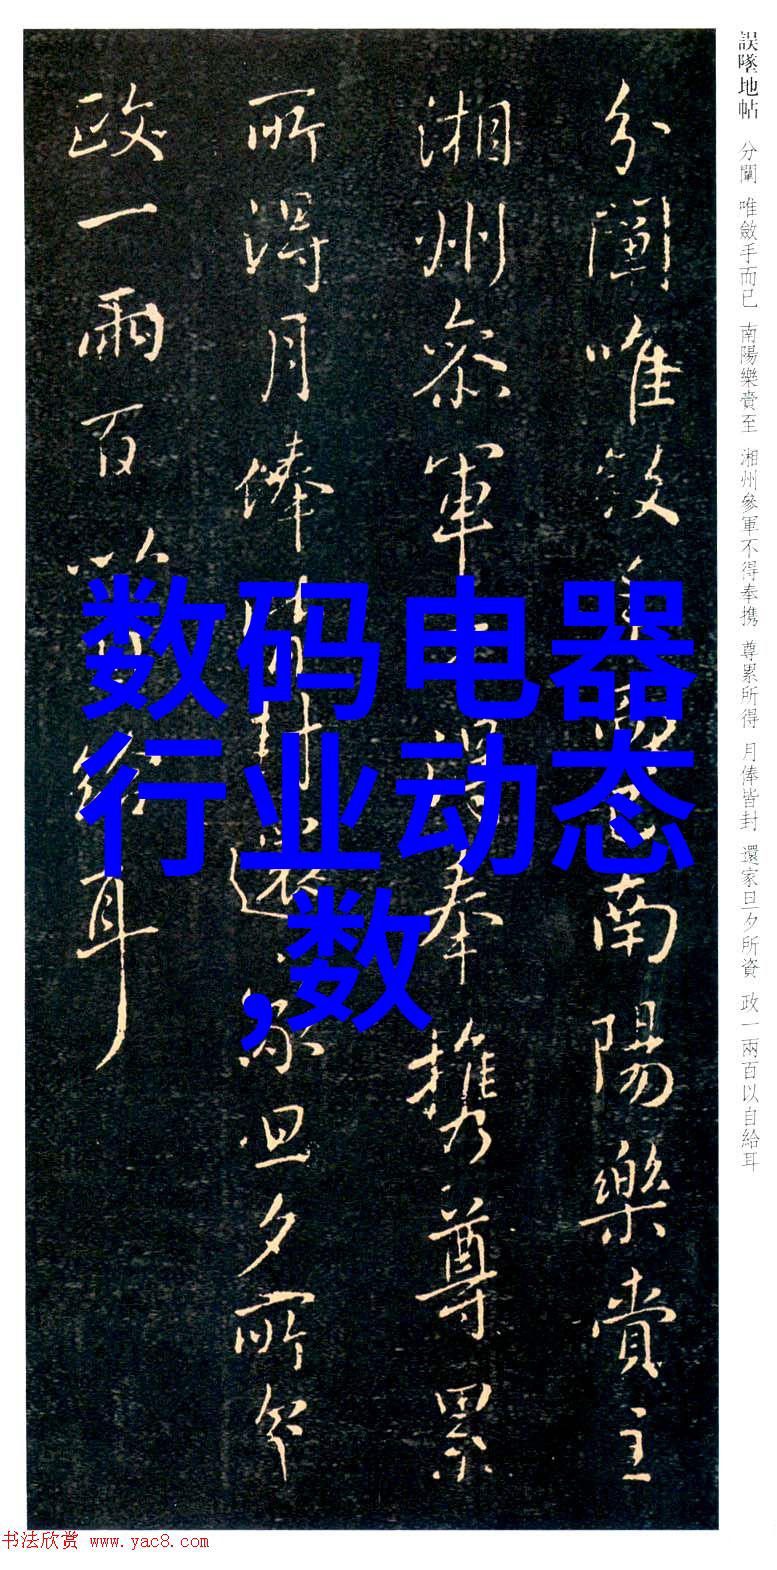 誤墜地帖 分闡 唯斂手而已 南陽樂賫至 湘州參軍不得奉携 尊累所得 月俸皆封 還家旦夕所資 政一兩百以自給耳
分闡唯斂手而已南陽樂賫至
湘州參軍不得奉携尊累
所得月俸皆封還家旦夕所資
政一兩百以自給耳
数码电器
行业动态
,数
书法欣赏 www.yac8.com